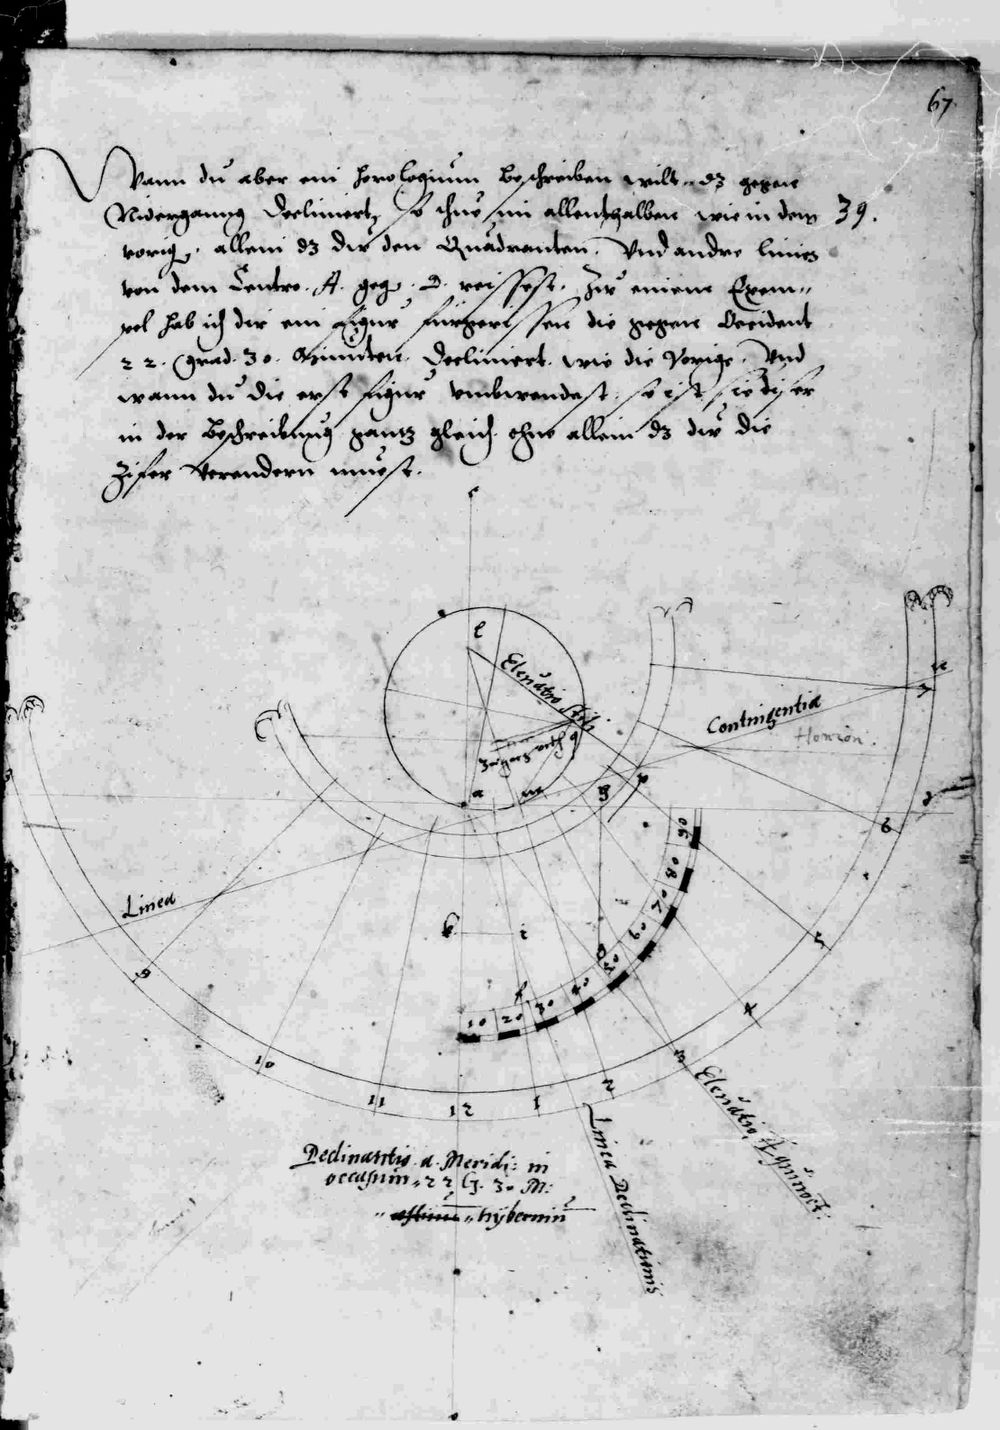 67.
Wann du aber ein horologium beschreiben wilt, dz gegen
Nidergang decliniert, so thue im allenthalben wie in dem 39.
vorig. allein dz du den Quadranten. Vnd andre linien
von dem Centro. A. geg. D. reissest. Zu einem Exem„
pel hab ich dir ein figur fürgerissen die gegen Occident
22. grad. 30. Minuten. decliniert. wie die Vorige. Vnd
wann du die erst figur vmbwendest, so ist sie diser
in der beschreibung gantz gleich. ohne allein dz du die
Zifer verendern muest.
c
e
Eleuatio stili
Zeigers
q
a
m
g
p
Contingentia
Horizon.
Linea
k
i
f
o
10 20 30 40 50 60 70 80 90
9 10 11 12 1 2 3 4 5 6 7
Declinantis a Meridi: in
occasum. 22 G. 30 M:
hybernũ
Linea Declinationis
Eleuatio Æquinoct: